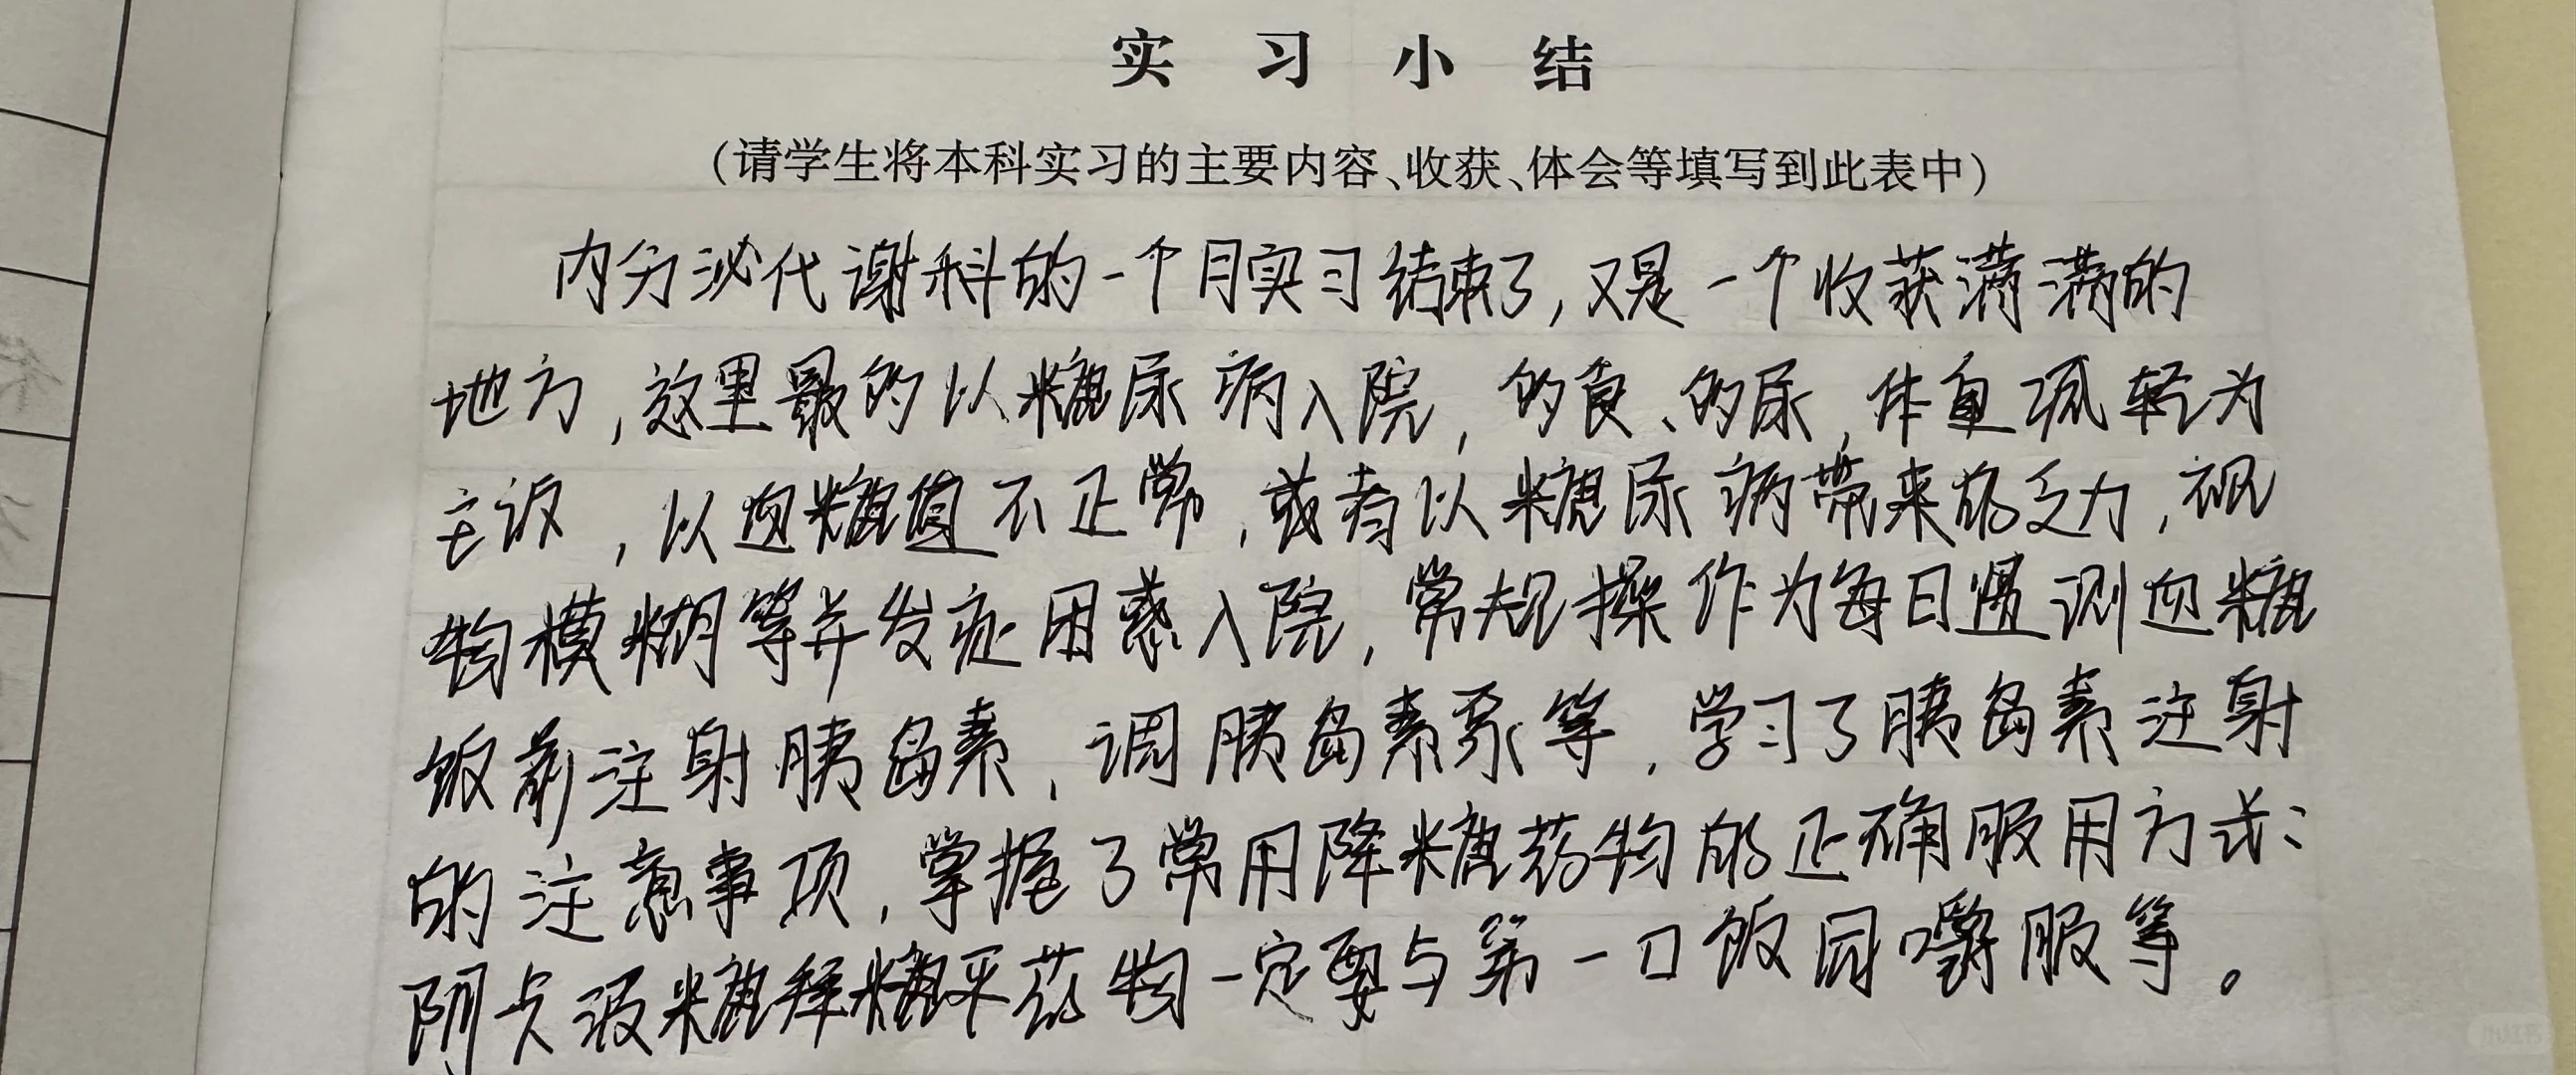 实习小结
(请学生将本科实习的主要内容、收获、体会等填写到此表中)
内分泌代谢科的一个月实习结束了,又是一个收获满满的
地方,这里最的以糖尿病入院,的食、的尿,体重减轻为
主诉,以血糖值不正常,或者以糖尿病带来的乏力,视
物模糊等并发症困惑入院,常规操作为每日监测血糖
饭前注射胰岛素,调胰岛素泵等,学习了胰岛素注射
的注意事项,掌握了常用降糖药物的正确服用方式:
阿卡波糖拜糖平药物一定要与第一口饭同嚼服等。